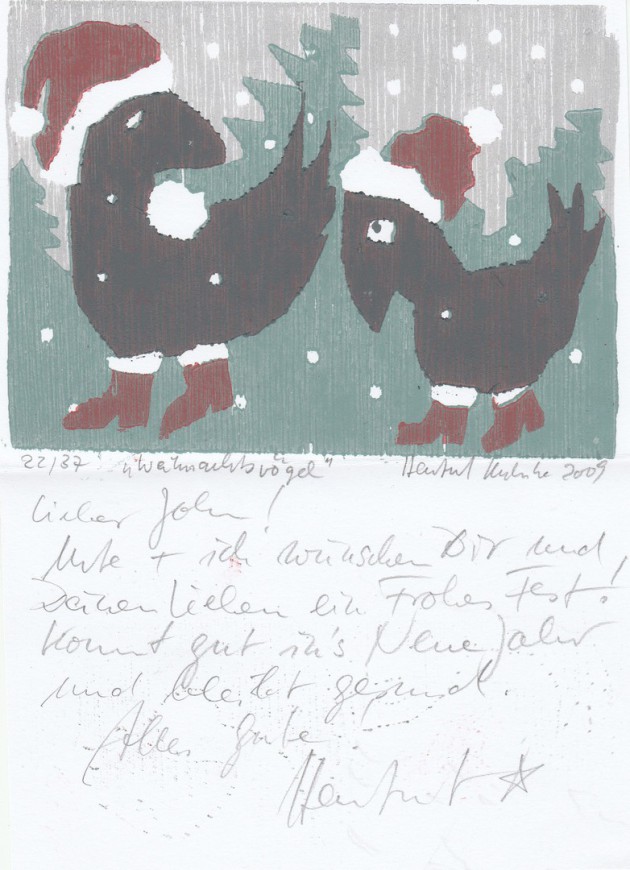 22/37 "Weihnachtsvögel" Hartmut 2009
Lieber John!
Ute + ich wünschen Dir und
Deinen Lieben ein Frohes Fest!
Kommt gut in's Neue Jahr
und bleibt gesund.
Alles Gute
Hartmut